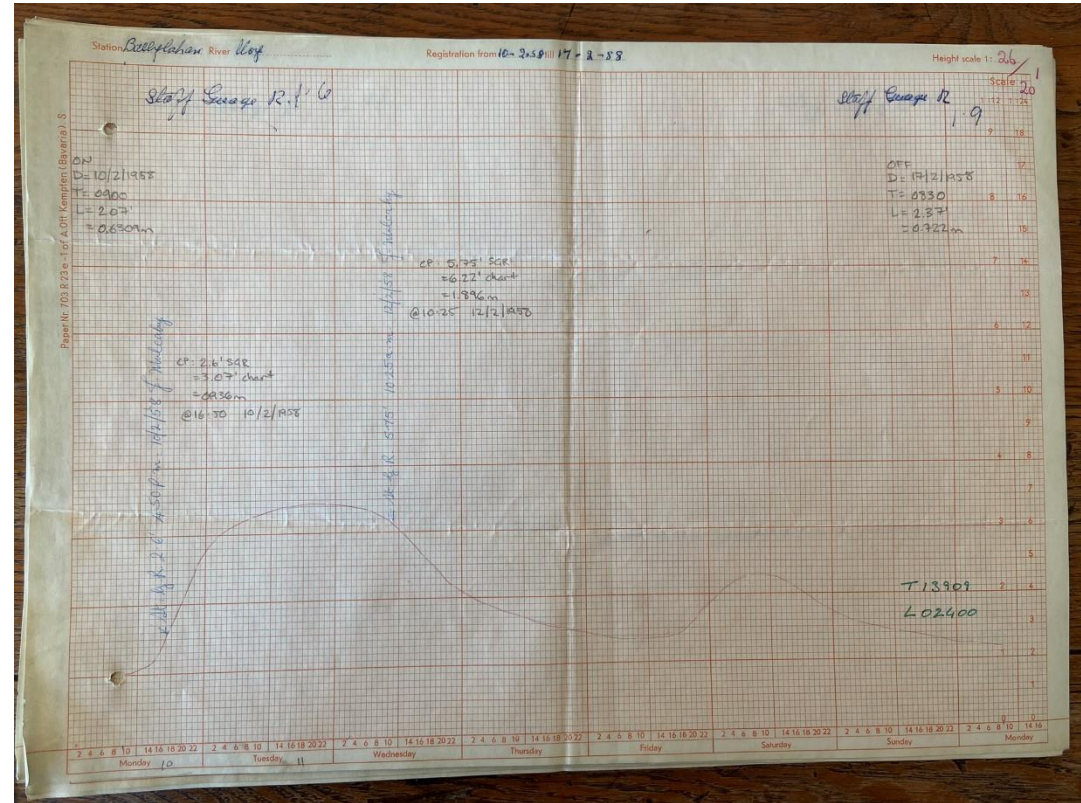 Station Ballylahan River Moy Registration from 10-2-58 till 17-2-58 Height scale 1: 26/1
Scale 20
1:12 1:24
Staff Guage R. 1' 6
Staff Guage R
1.9
Paper Nr 703 R 23 e - 1 of A. Ott Kempten (Bavaria) S
ON
D= 10/2/1958
T= 0900
L= 2.07'
= 0.6309m
OFF
D= 17/2/1958
T= 0330
L= 2.37'
= 0.722m
CP: 5.75' SGR
=6.22' chart
=1.896m
@10:25 12/2/1958
CP: 2.6' SGR
=3.07' chart
=0.936m
@16:50 10/2/1958
R 2.6' 4.50 P.m 10/2/58 J. Mulcahy
R 5.75' 10.25 a.m 12/2/58 J. Mulcahy
T13909
L02400
9 18
17
8 16
15
7 14
13
6 12
5 10
9
4 8
7
3 6
5
2 4
3
1 2
1
0 0
2 4 6 8 10 14 16 18 20 22 2 4 6 8 10 14 16 18 20 22 2 4 6 8 10 14 16 18 20 22 2 4 6 8 10 14 16 18 20 22 2 4 6 8 10 14 16 18 20 22 2 4 6 8 10 14 16 18 20 22 2 4 6 8 10 14 16 18 20 22 2 4 6 8 10 14 16
Monday 10 Tuesday 11 Wednesday Thursday Friday Saturday Sunday Monday